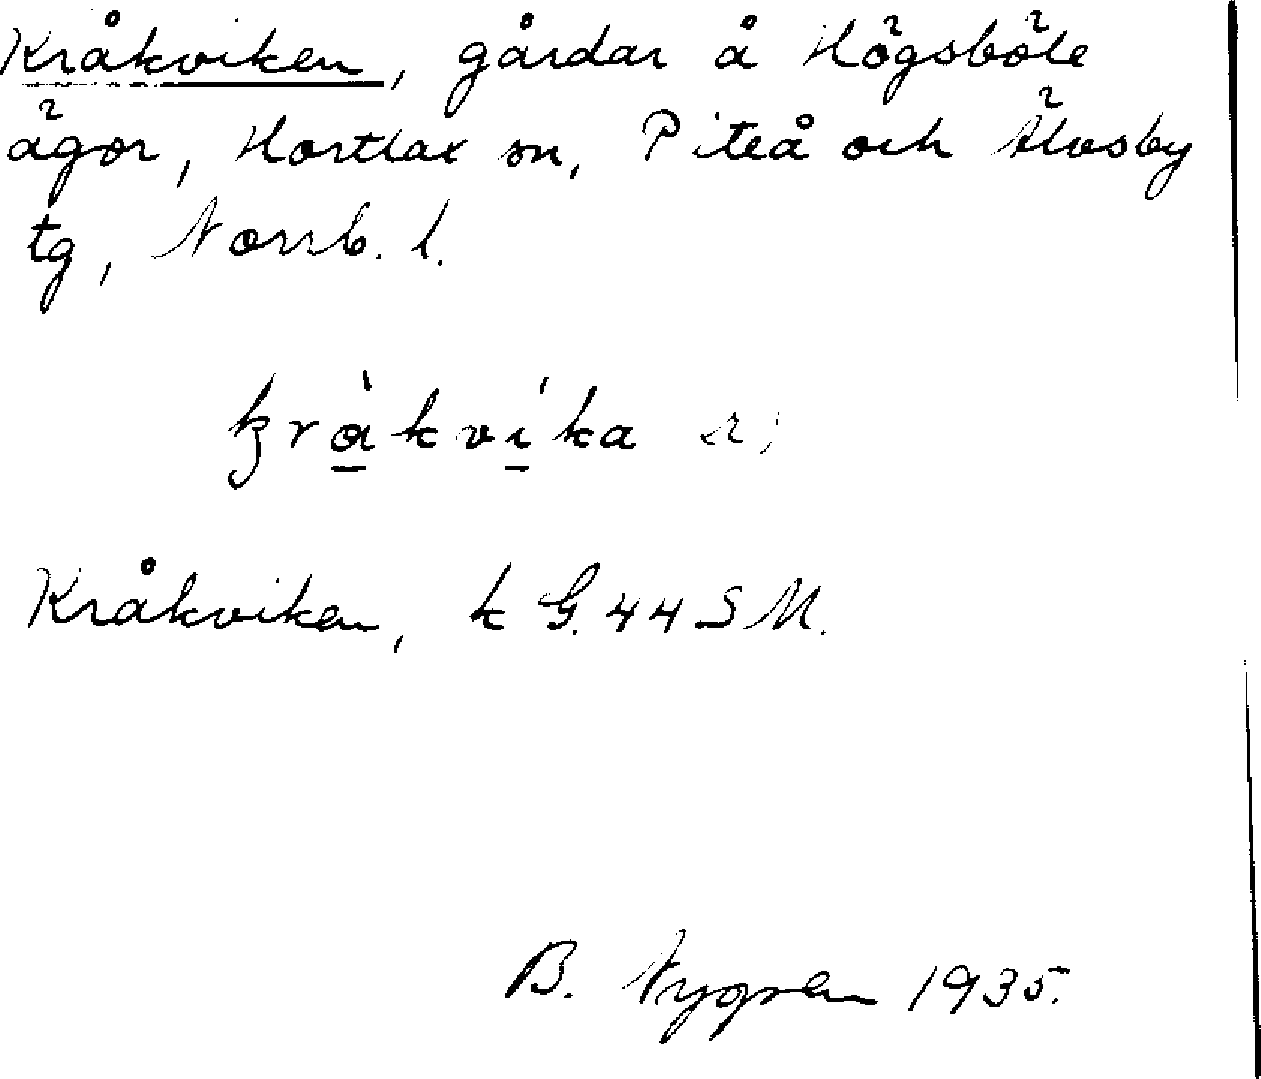 Kråkviken, gårdar å Högsböle
ägor, Hortlax sn, Piteå och Älvsby
tg, Norrb. l.
kråkvika
Kråkviken, k G. 44 S M.
B. Nygren 1935.